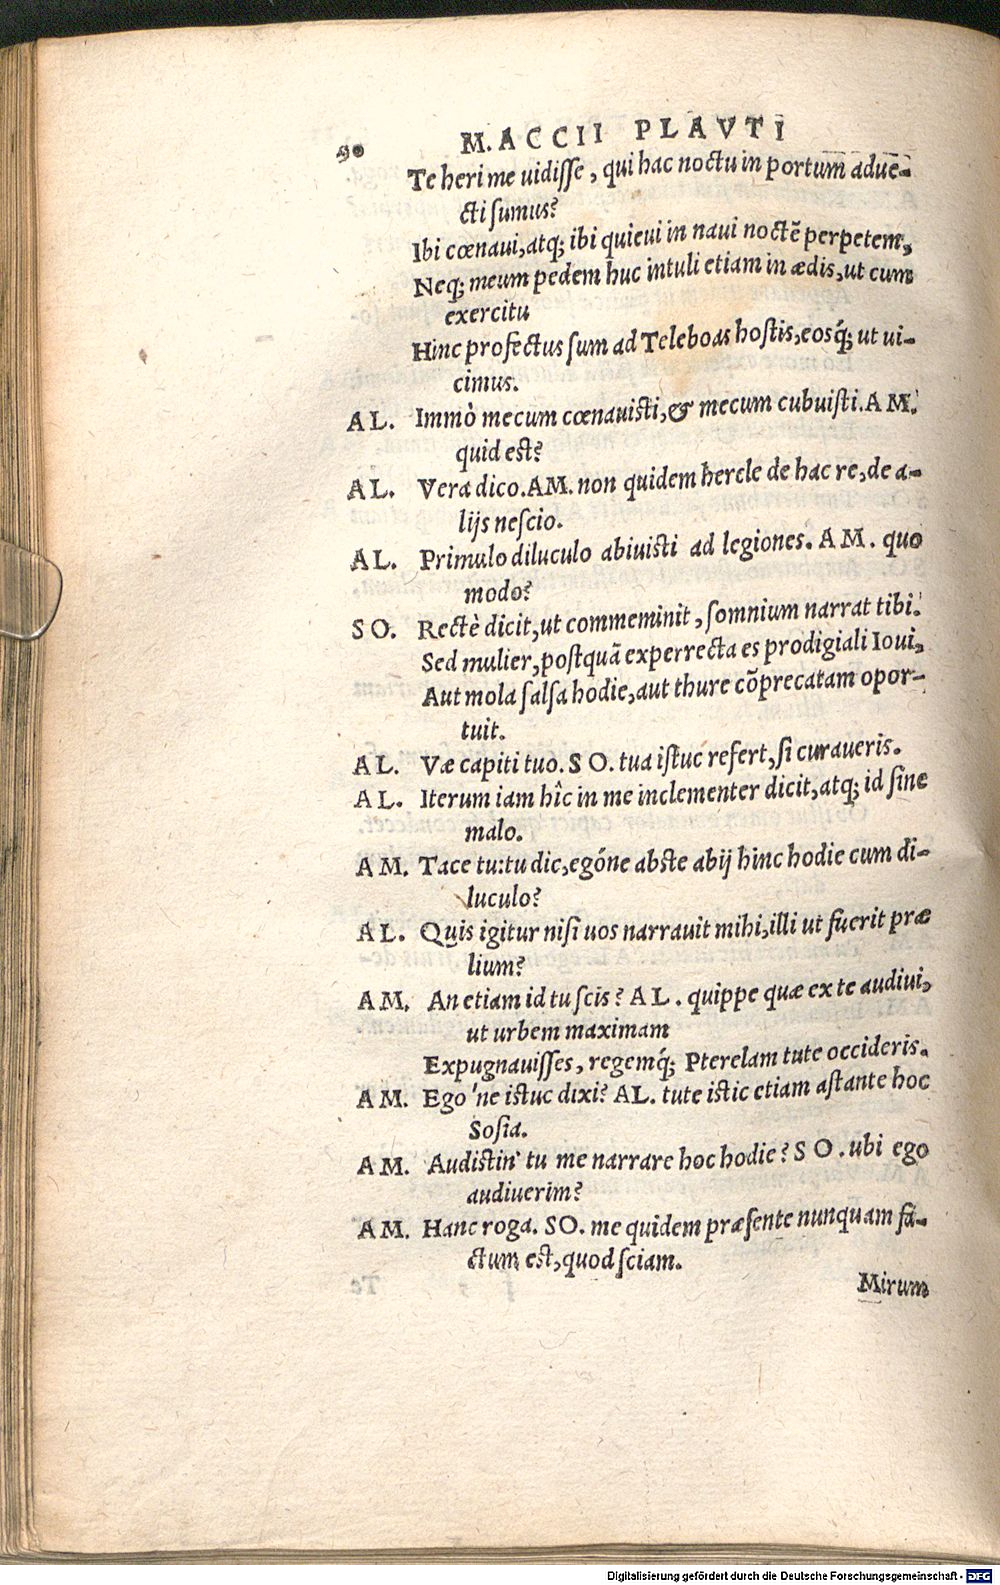 90 M. ACCII PLAVTI
Te heri me uidisse, qui hac noctu in portum̅ adue̅-
cti sumus?
Ibi cœnaui, atq; ibi quieui in naui noctẽ perpetem,
Neq; meum pedem huc intuli etiam in ædis, ut cum
exercitu
Hinc profectus sum ad Teleboas hostis, eosq́; ut ui-
cimus.
AL. Immò mecum cœnauisti, & mecum cubuisti. AM.
quid est?
AL. Vera dico. AM. non quidem hercle de hac re, de a-
lijs nescio.
AL. Primulo diluculo abiuisti ad legiones. AM. quo
modo?
SO. Rectè dicit, ut commeminit, somnium narrat tibi.
Sed mulier, postquã experrecta es prodigiali Ioui,
Aut mola salsa hodie, aut thure cõprecatam opor-
tuit.
AL. Væ capiti tuo. SO. tua istuc refert, si curaueris.
AL. Iterum iam hîc in me inclementer dicit, atq; id sine
malo.
AM. Tace tu: tu dic, egóne abste abij hinc hodie cum di-
luculo?
AL. Quis igitur nisi uos narrauit mihi, illi ut fuerit præ
lium?
AM. An etiam id tu scis? AL. quippe quæ ex te audiui,
ut urbem maximam
Expugnauisses, regemq́; Pterelam tute occideris.
AM. Ego'ne istuc dixi? AL. tute istic etiam astante hoc
Sosia.
AM. Audistin' tu me narrare hoc hodie? SO. ubi ego
audiuerim?
AM. Hanc roga. SO. me quidem præsente nunquam fa-
ctum est, quod sciam.
Mirum
Digitalisierung gefördert durch die Deutsche Forschungsgemeinschaft - DFG